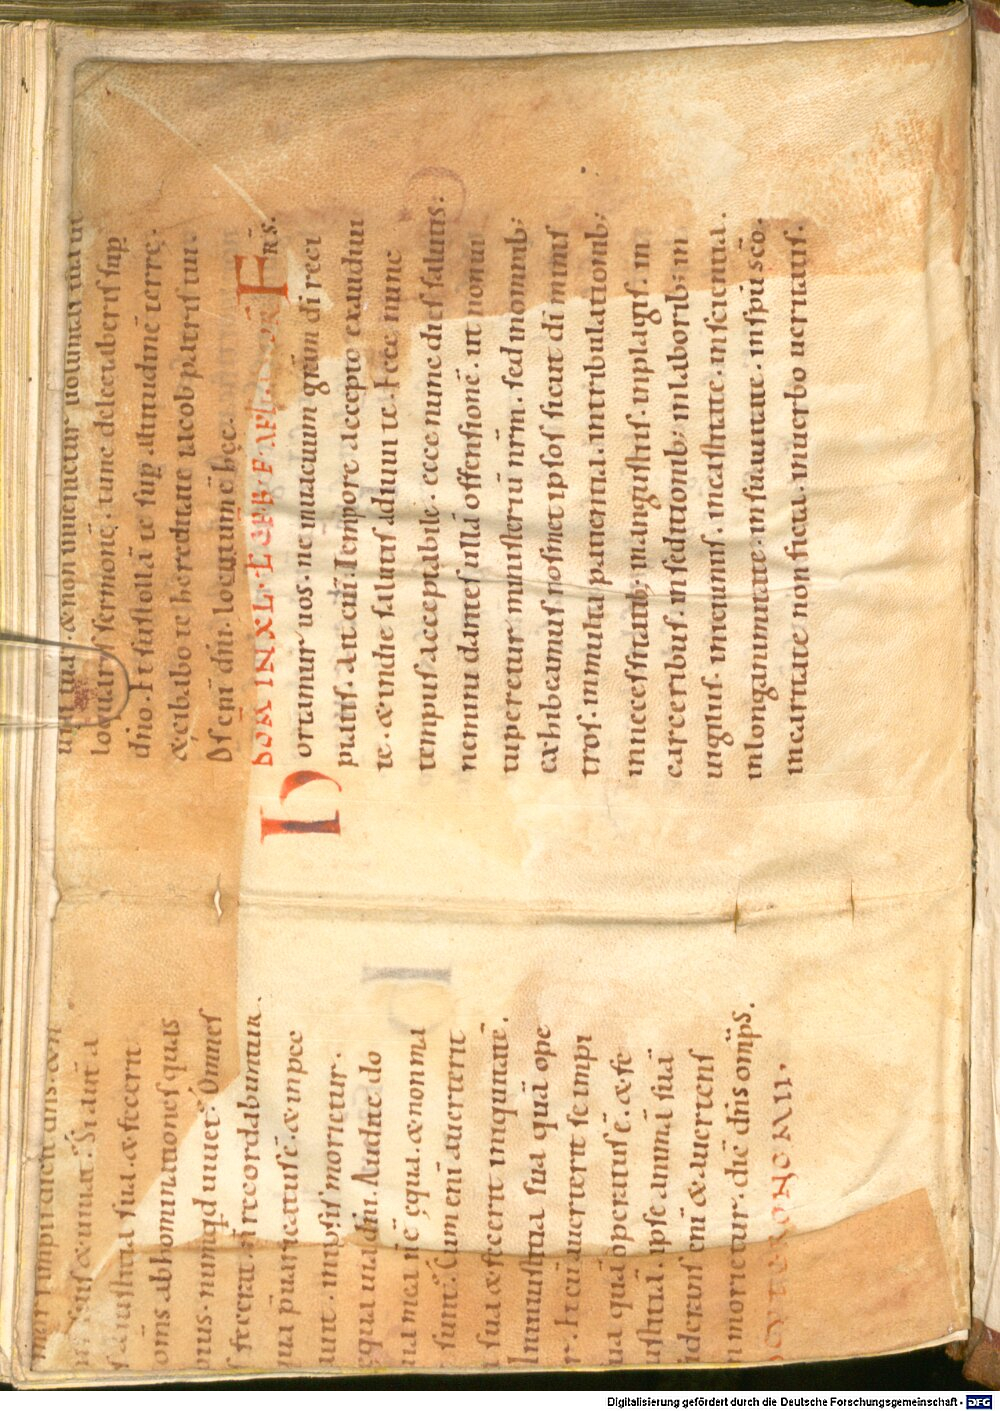 tua. & non invenietur voluntas tua ut
loquaris sermonē. tunc delectaberis sup
dn̄o. Et sustollā te sup altitudinē terrę.
& cibabo te hereditate iacob patris tui
Os eni dn̄i. locutum ē hęc.
DOM IN XL. FRS.
Hortamur vos. ne in vacuum grām dī reci
piatis. Ait enī. Tempore accepto exaudivi
te. & in die salutis adiuvi te. Ecce nunc
tempus acceptabile. ecce nunc dies salutis.
nemini dantes ullā offensionē. ut non vi
tuperetur ministeriū nr̄m. sed in omnib;
exhibeamus nosmet ipsos sicut dī minis
tros. in multa patientia. in tribulationib;
in necessitatib; in angustiis. in plagis. in
carcerib;. in seditionib; in laborib; in
vigiliis. in ieiuniis. in castitate. in scientia.
in longanimitate. in suavitate. in spū scō.
in caritate non ficta. in verbo veritatis.
mors impii dicit dn̄s. & n
& vivat. Si autē a
sa iustitia sua. & fecerit
om̄s abhominationes quas
pius. numqd vivet. Om̄nes
s fecerat. n̄ recordabuntur.
qua p̄varicatus ē. & in pec
in ipsis morietur.
ęqua via dn̄i. Audite do
via mea n̄ ē ęqua. & non ma
sunt. Cum enī averterit
sua. & fecerit iniquitatē.
In iniustitia sua quā ope
r. Et cū averterit se impi
ua quā operatus ē. & fe
iustitiā. ipse animā suā
iderans enī & avertens
n morietur. dic̄ dn̄s om̄ps.